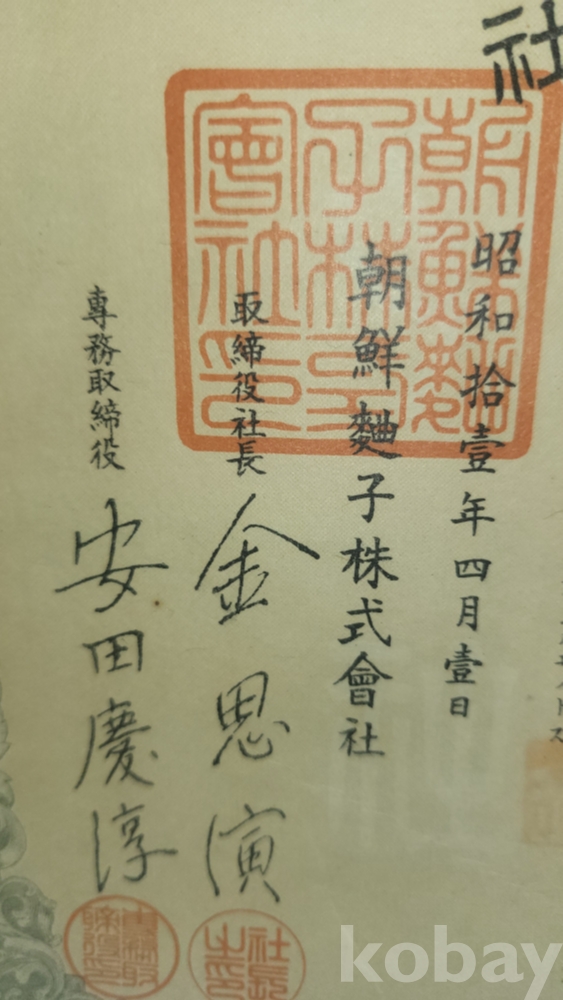 社
昭和拾壹年四月壹日
朝鮮麯子株式會社
取締役社長 金思演
専務取締役 安田慶淳
朝鮮麯
子株式
會社印
社長
kobay